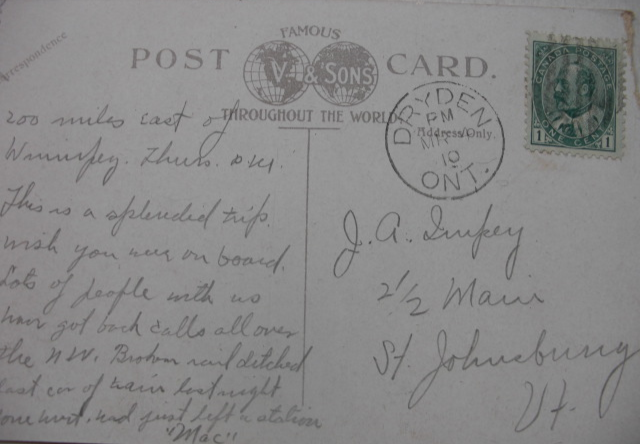 Correspondence
FAMOUS
POST CARD.
V. & SONS
THROUGHOUT THE WORLD
Address Only.
DRYDEN
PM
10
ONT.
CANADA POSTAGE
1 ONE CENT 1
200 miles east of
Winnipeg. Thurs.
This is a splendid trip.
wish you were on board.
Lots of people with us
have got back calls all over
the N.W. Broken rail ditched
last car of train last night
one hurt. had just left a station
"Mac"
J. A. Impey
2 1/2 Main
St. Johnsbury
Vt.